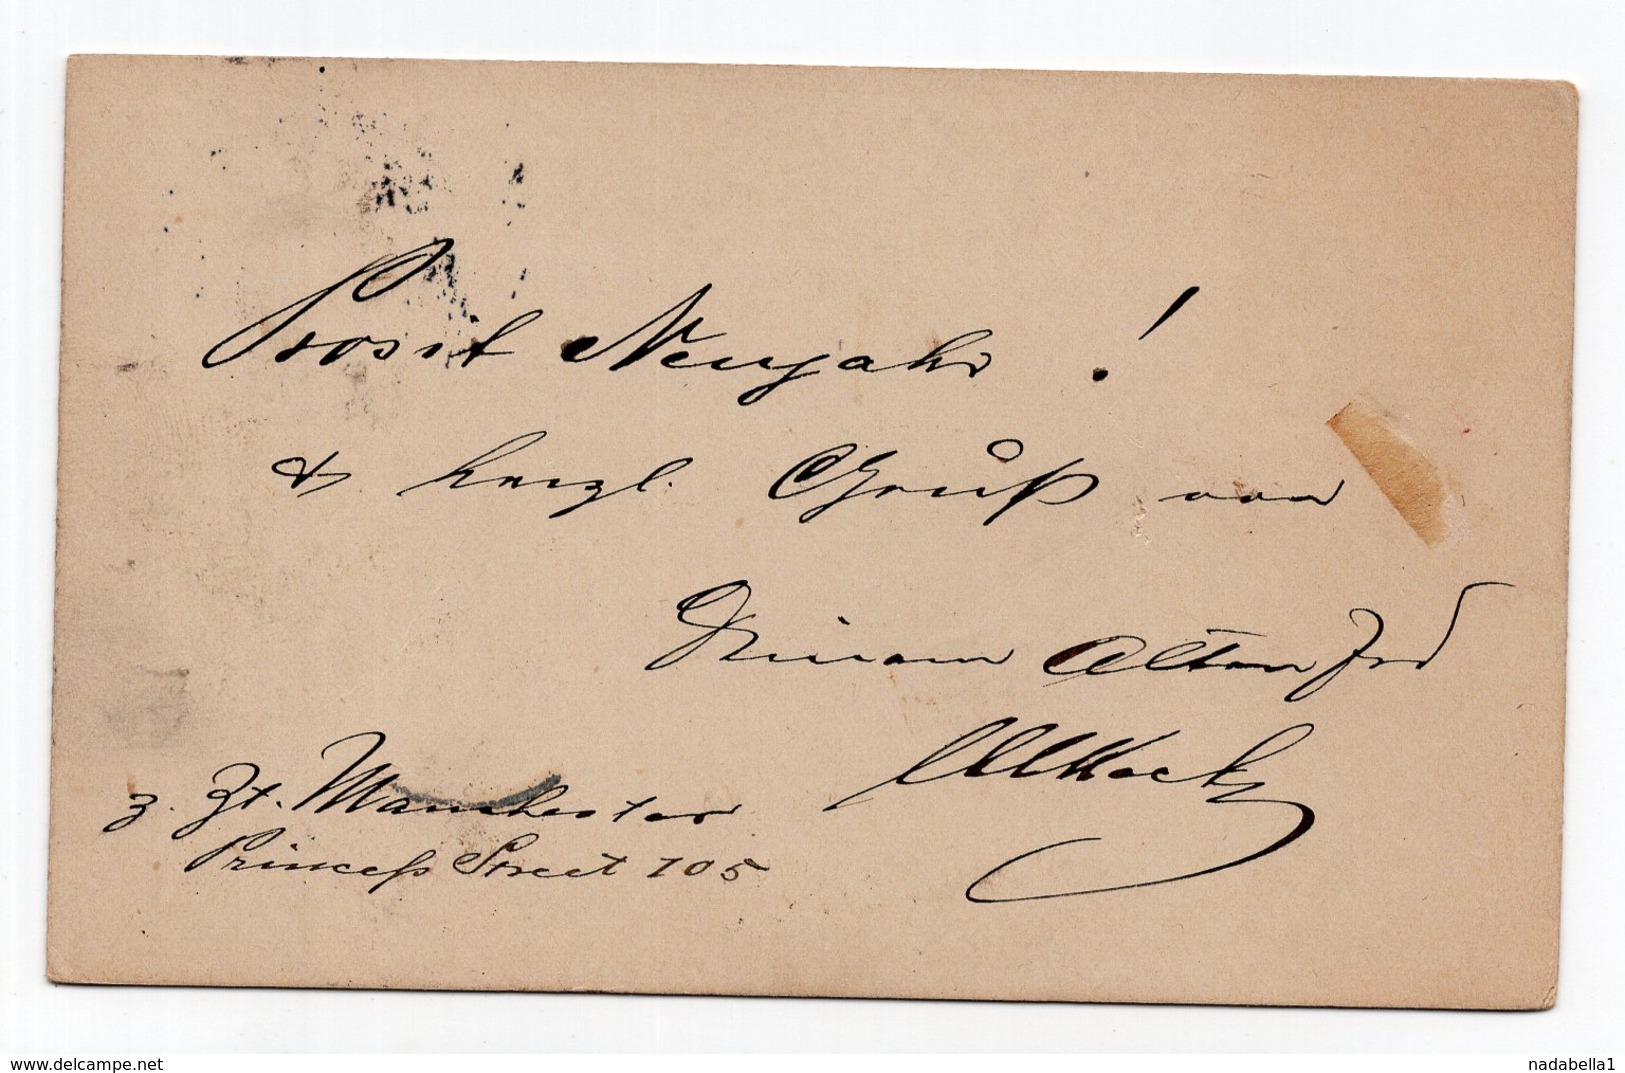 Prosit Neujahr !
& herzl. Gruß von
Deinem alten Frd
z. Zt. Manchester
Princess Street 105
delcampe.net
nadabella1